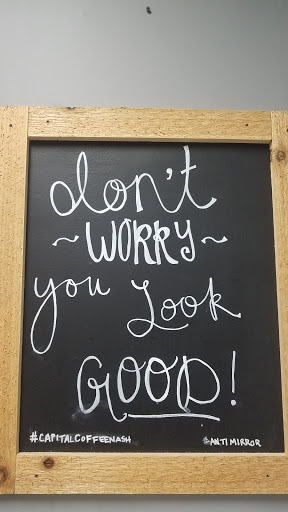 don't
~ WORRY ~
you Look
GOOD!
#CAPITALCOFFEENASH #ANTIMIRROR